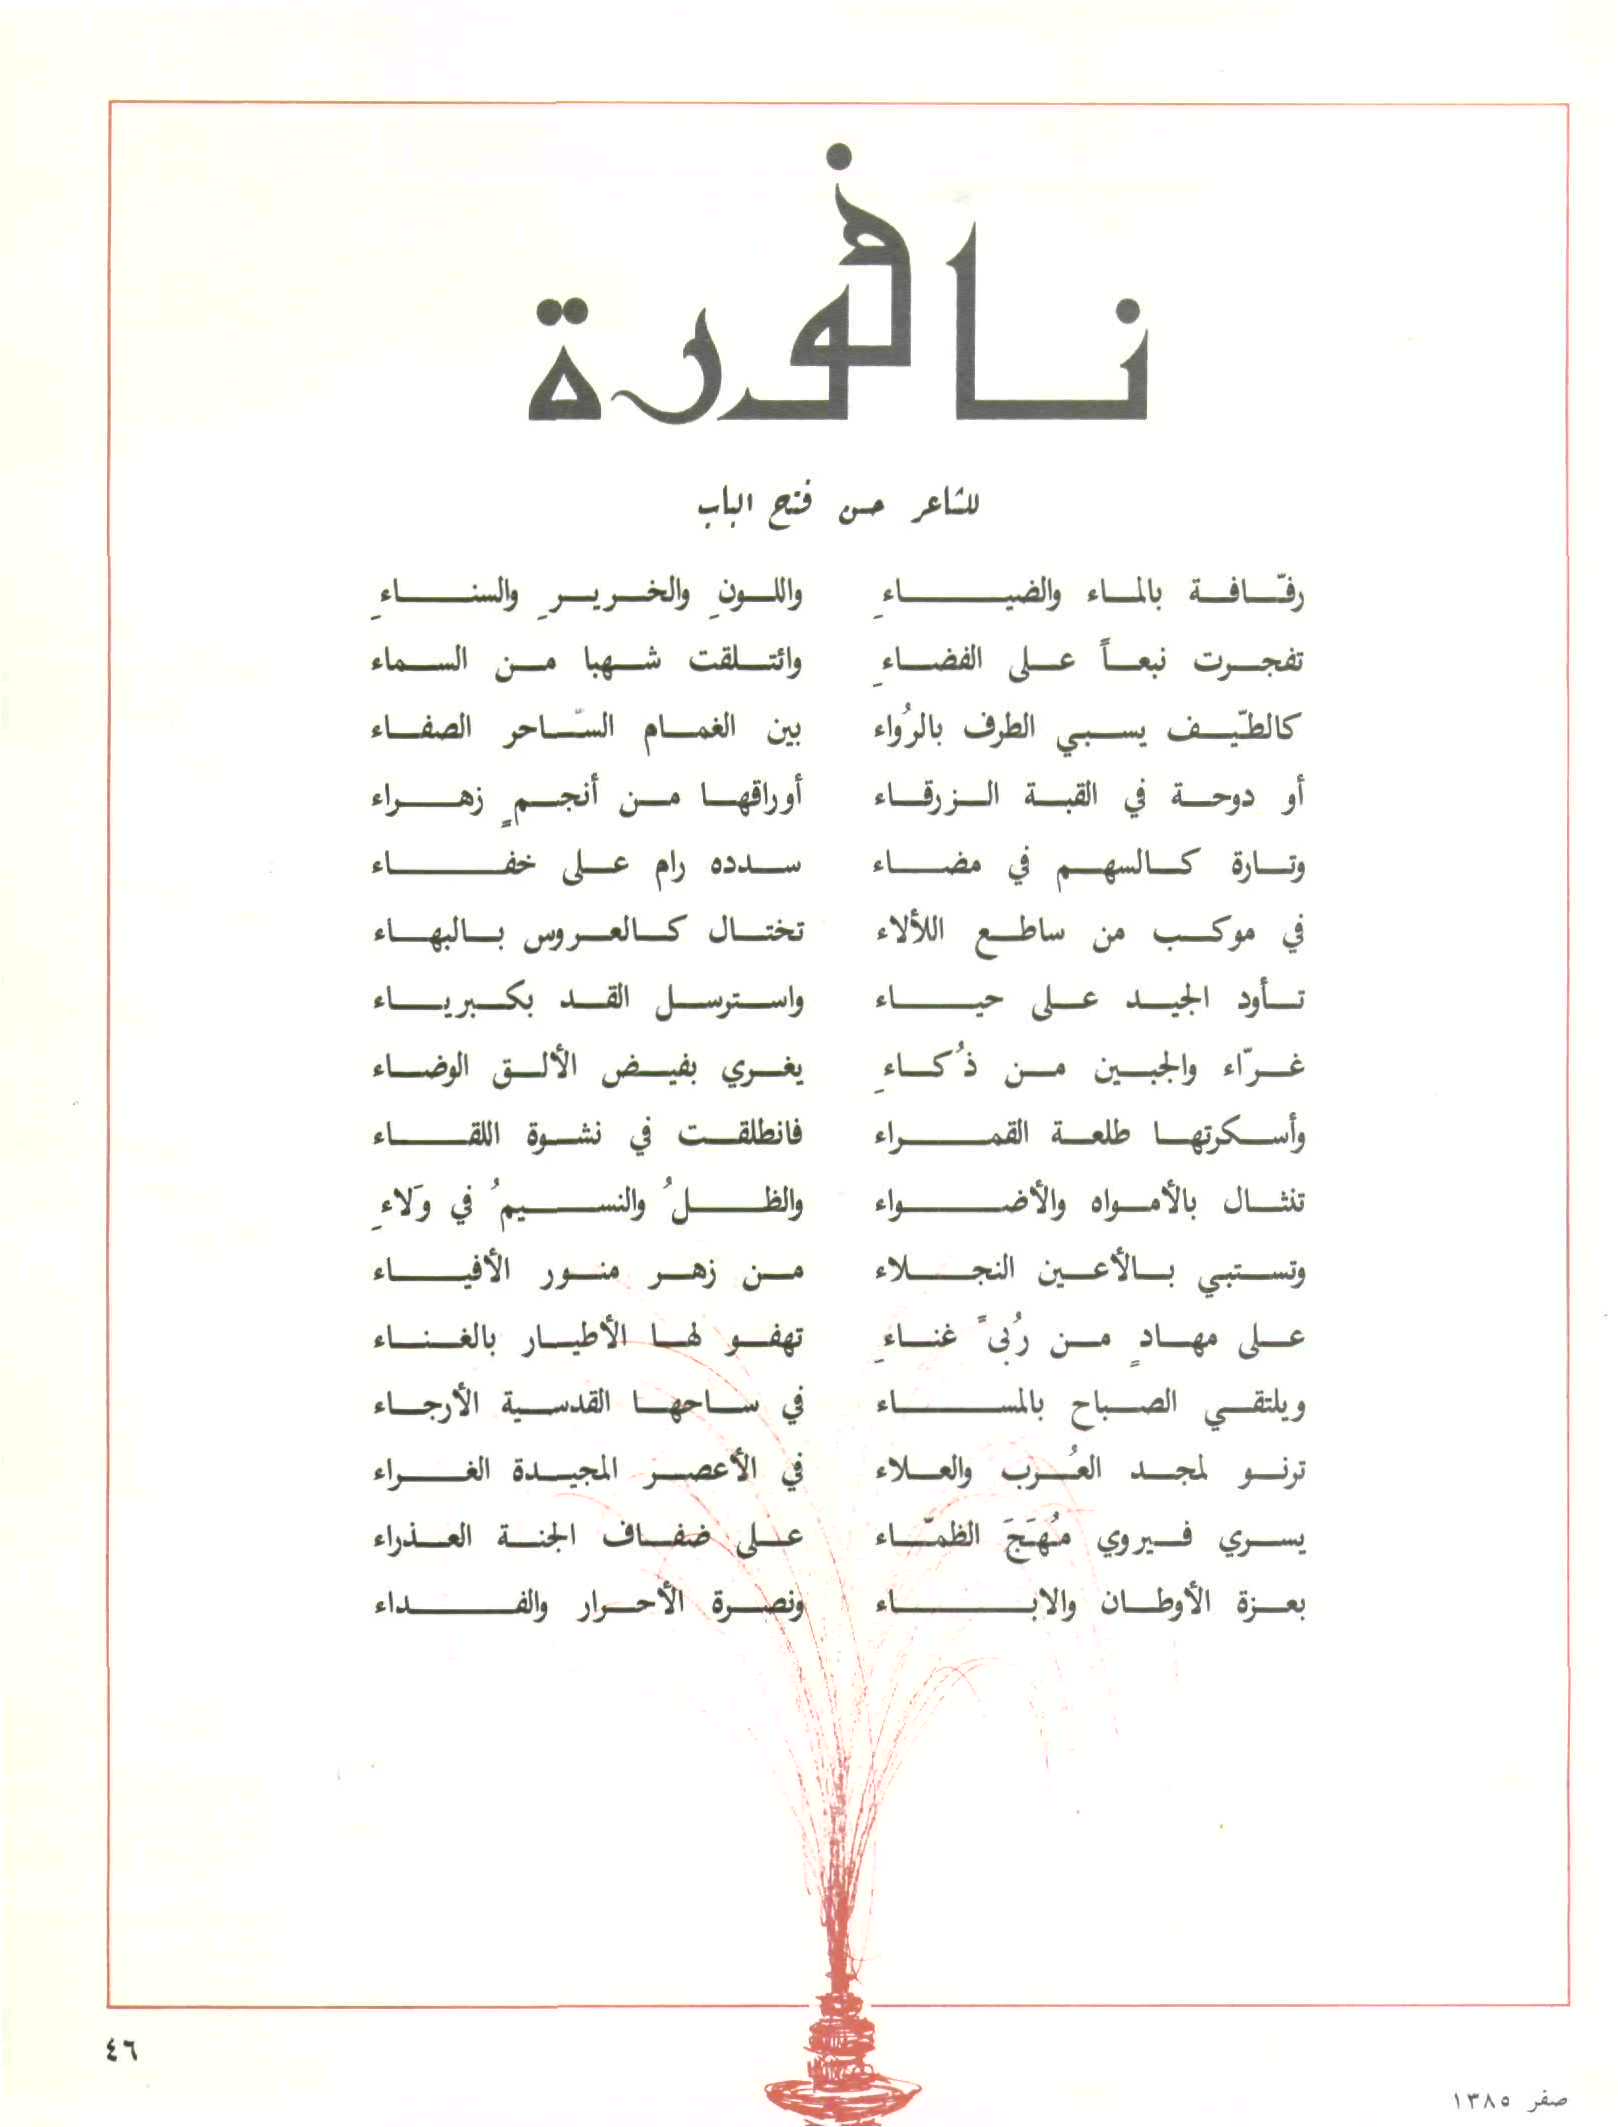 نافورة
للشاعر حسن فتح الباب
رفّافة بالماء والضياءِ واللونِ والخريرِ والسناءِ
تفجرت نبعاً على الفضاءِ وائتلقت شهبا من السماء
كالطيّف يسبي الطرف بالرُواء بين الغمام السّاحر الصفاء
أو دوحة في القبة الزرقاء أوراقها من أنجمٍ زهراء
وتارة كالسهم في مضاء سدده رام على خفاء
في موكب من ساطع اللألاء تختال كالعروس بالبهاء
تأود الجيد على حياء واسترسل القد بكبرياء
غرّاء والجبين من ذُكاءِ يغري بفيض الألق الوضاء
وأسكرتها طلعة القمراء فانطلقت في نشوة اللقاء
تنثال بالأمواه والأضواء والظلُ والنسيمُ في وَلاءِ
وتستبي بالأعين النجلاء من زهر منور الأفياء
على مهادٍ من رُبىً غناءِ تهفو لها الأطيار بالغناء
ويلتقي الصباح بالمساء في ساحها القدسية الأرجاء
ترنو لمجد العُرب والعلاء في الأعصر المجيدة الغراء
يسري فيروي مُهَجَ الظمّاء على ضفاف الجنة العذراء
بعزة الأوطان والاباء ونصرة الأحرار والفداء
٤٦
صفر ١٣٨٥